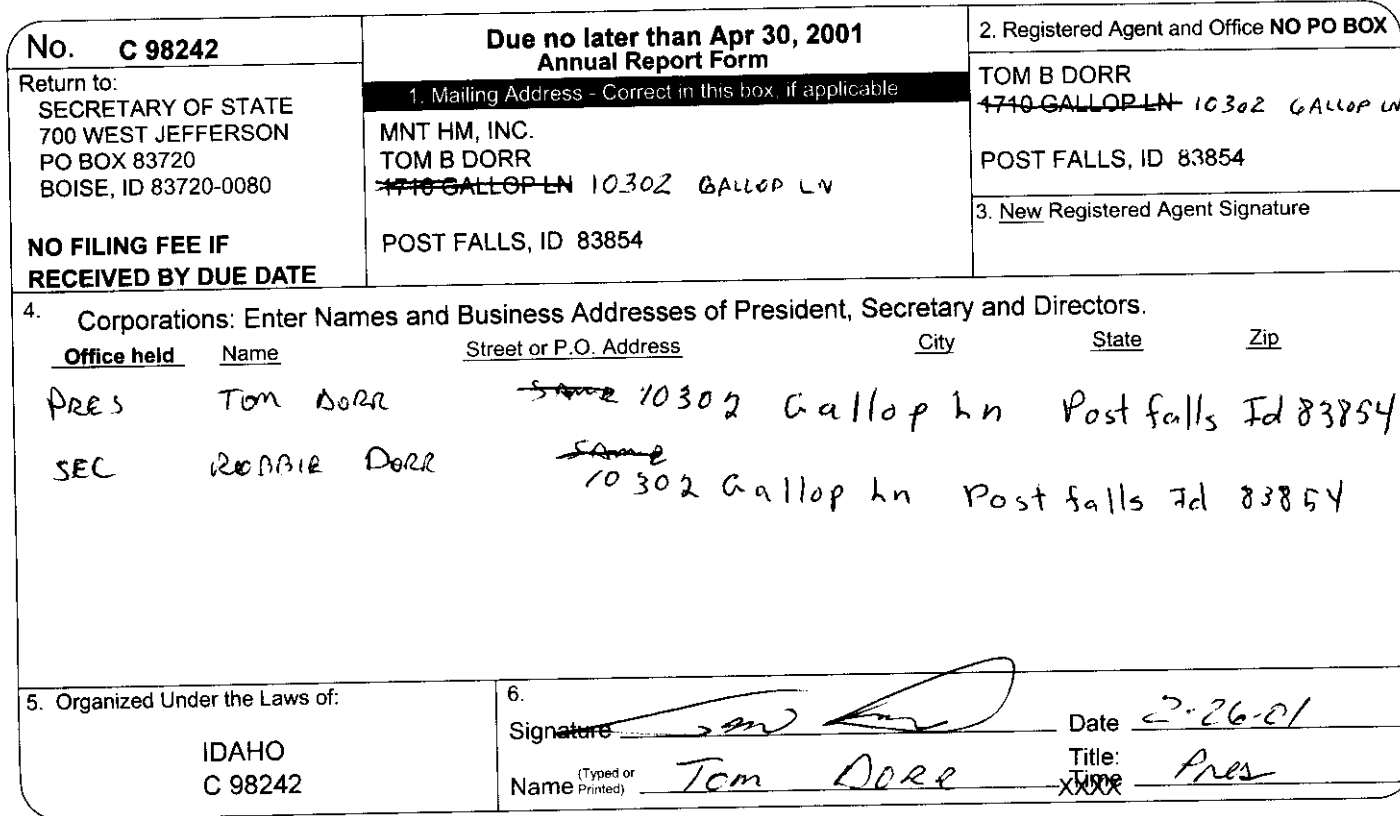 No. C 98242
Return to:
SECRETARY OF STATE
700 WEST JEFFERSON
PO BOX 83720
BOISE, ID 83720-0080
NO FILING FEE IF
RECEIVED BY DUE DATE
Due no later than Apr 30, 2001
Annual Report Form
1. Mailing Address - Correct in this box, if applicable
MNT HM, INC.
TOM B DORR
1710 GALLOP LN 10302 GALLOP LN
POST FALLS, ID 83854
2. Registered Agent and Office NO PO BOX
TOM B DORR
1710 GALLOP LN 10302 GALLOP LN
POST FALLS, ID 83854
3. New Registered Agent Signature
4. Corporations: Enter Names and Business Addresses of President, Secretary and Directors.
Office held Name Street or P.O. Address City State Zip
PRES Tom DORR SAME 10302 Gallop Ln Post falls Id 83854
SEC ROBBIE DORR SAME
10302 Gallop Ln Post falls Id 83854
5. Organized Under the Laws of:
IDAHO
C 98242
6.
Signature Date 2-26-01
Name (Typed or Printed) Tom DORR Title: Pres
Time
XXXX